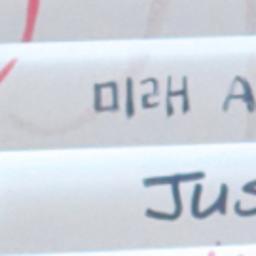 미래 A
Jus